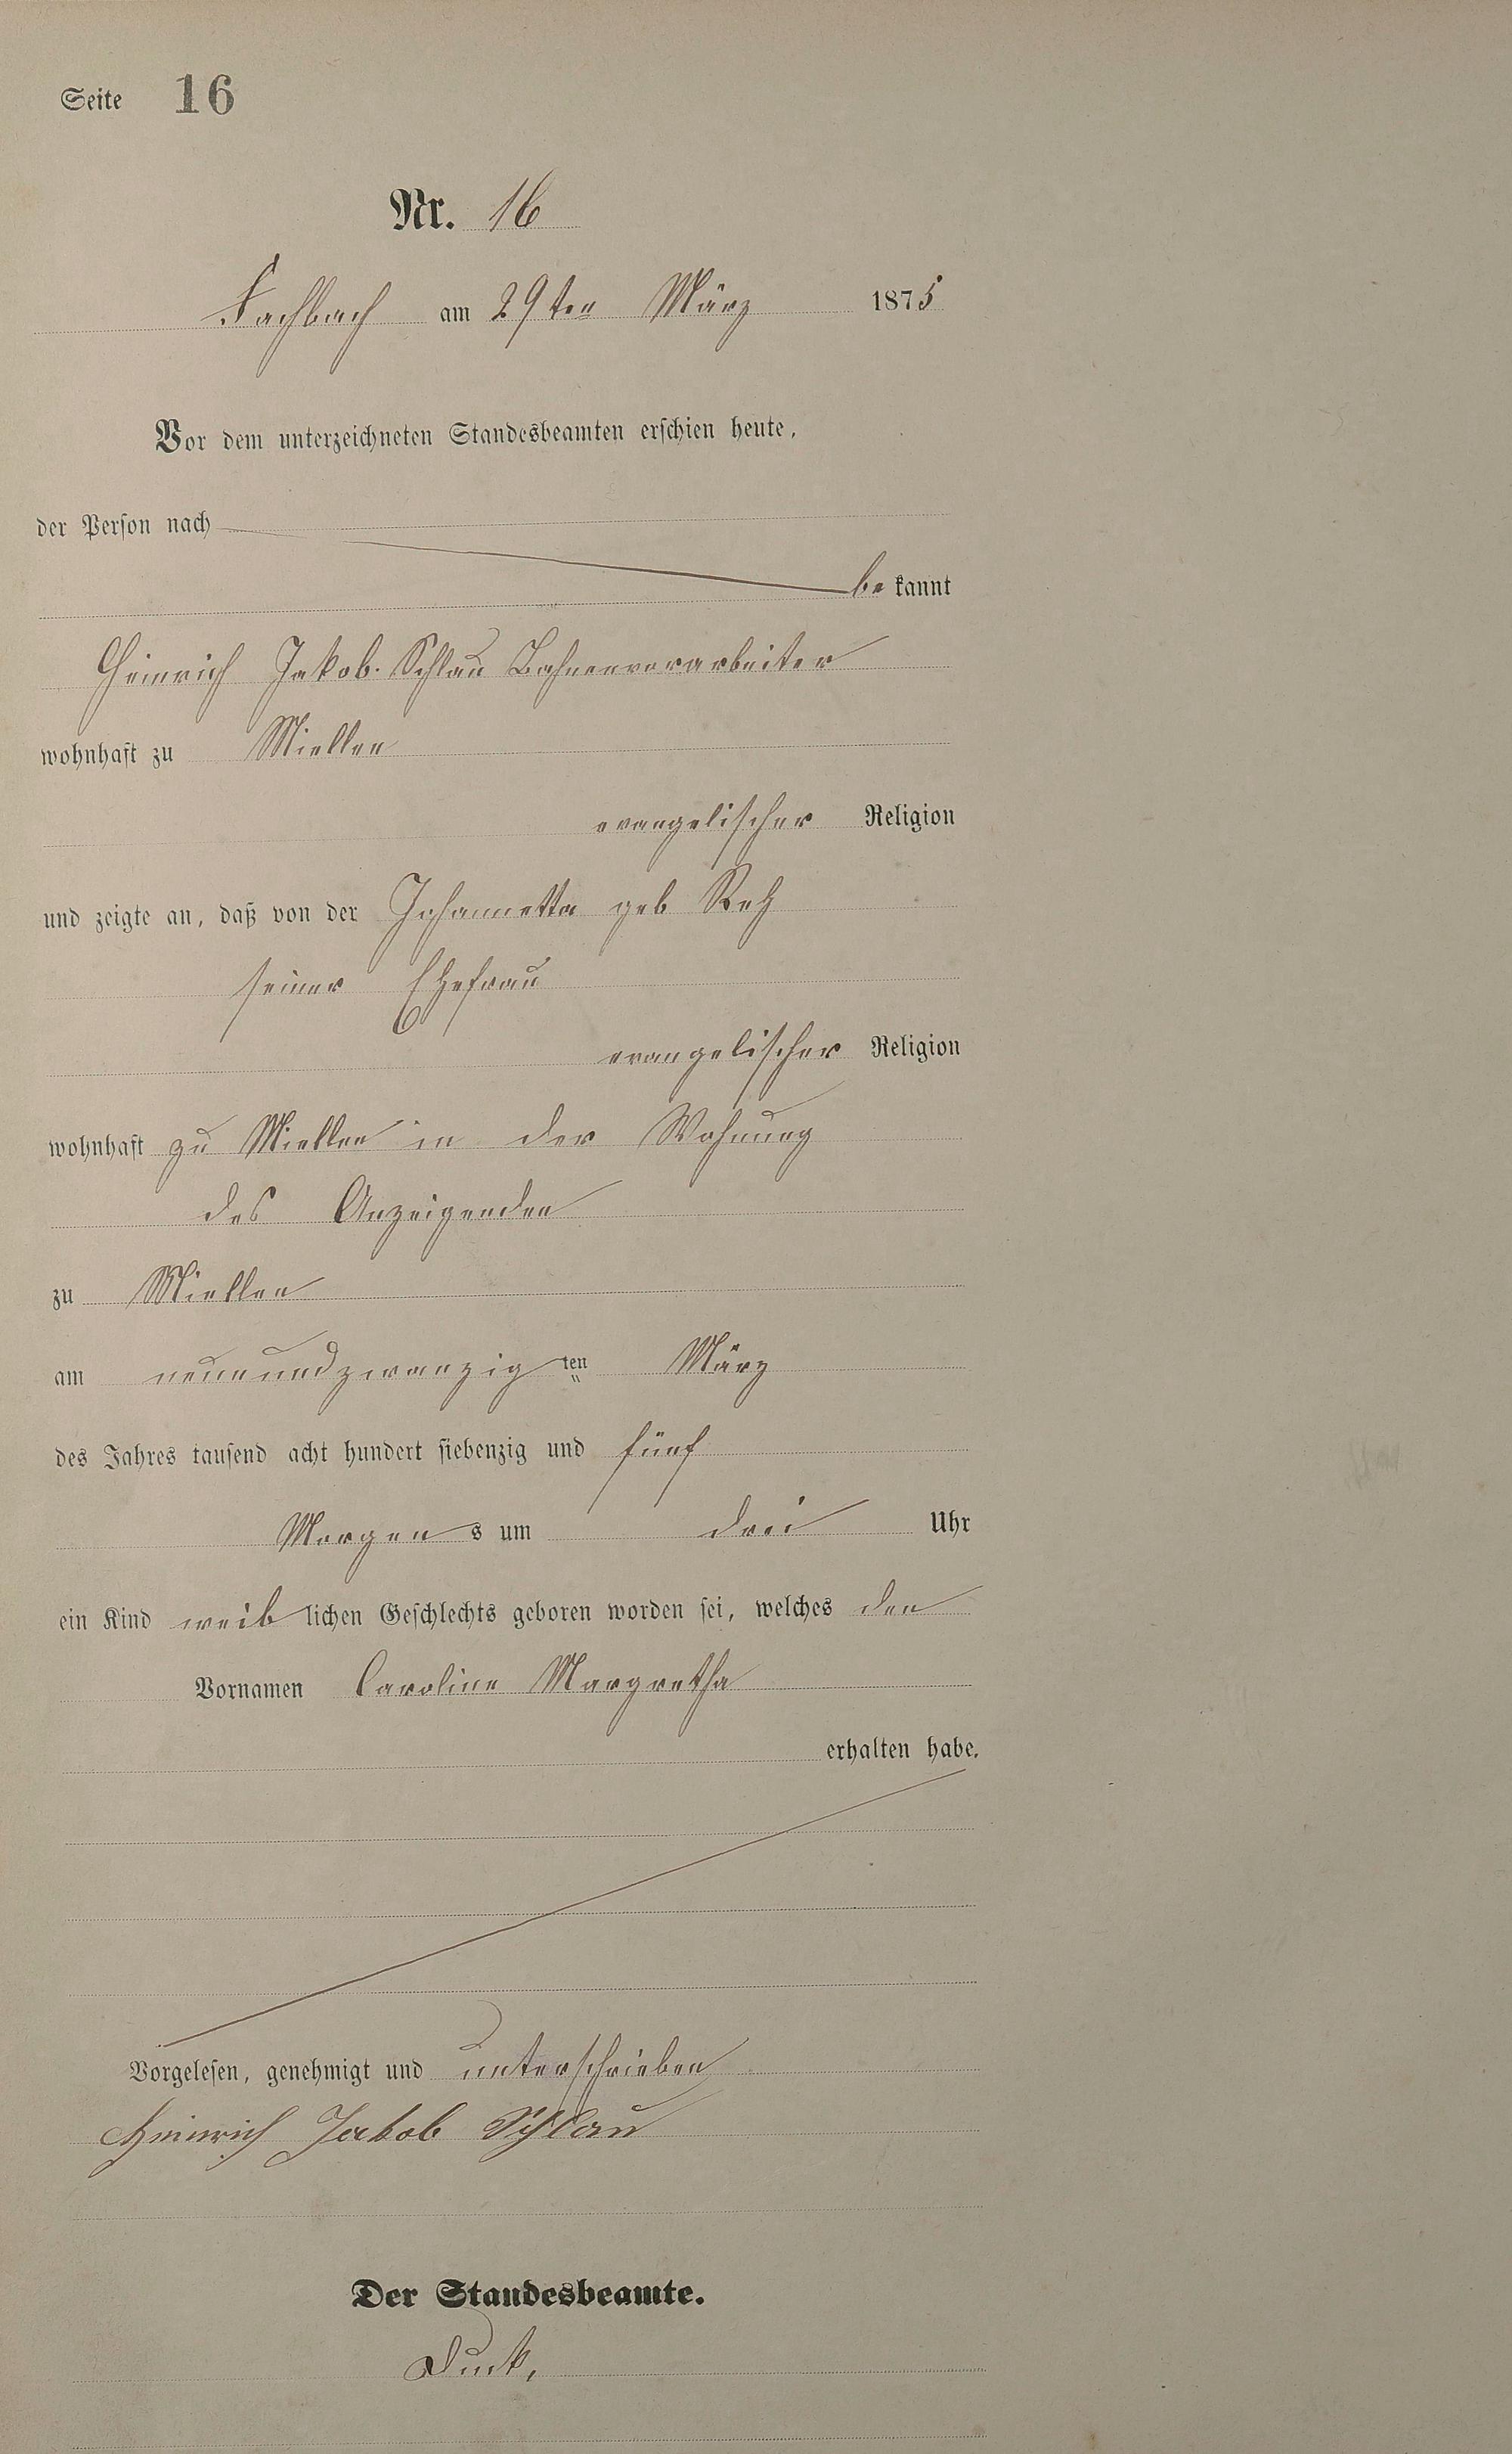 Seite 16
Nr. 16
Fachbach am 29ten März 1875
Vor dem unterzeichneten Standesbeamten erschien heute,
der Person nach
be kannt
Heinrich Jakob Schlau Bahnvorarbeiter
wohnhaft zu Miellen
evangelischer Religion
und zeigte an, daß von der Johannetta geb
seiner Ehefrau
evangelischer Religion
wohnhaft zu Miellen in der Wohnung
des Anzeigenden
zu Miellen
am neunundzwanzigten März
des Jahres tausend acht hundert siebenzig und fünf
Morgens um drei Uhr
ein Kind weiblichen Geschlechts geboren worden sei, welches den
Vornamen Caroline Margretha
erhalten habe.
Vorgelesen, genehmigt und unterschrieben
Heinrich Jakob Schlau
Der Standesbeamte.